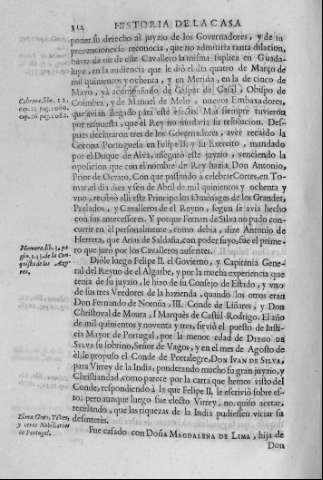 312 HISTORIA DE LA CASA
poner su derecho al juyzio de los Governadores, y de su
reconocia, que no admitiria tanta dilacion,
de este Cavallero la misma suplica en Guada-
lupe, en la audiencia que le diò el dia quatro de Março de
mil quinientos y ochenta, y en Merida, en la de cinco de
Mayo, yà acompañando de Gaspar de Casal, Obispo de
Coimbra, y de Manuel de Melo, nuevos Embaxadores,
que avian llegado para este efecto. Mas siempre tuvieron
por respuesta, que el Rey no mudaria su resolucion. Des-
pues declararon tres de los Governadores, aver recaido la
Corona Portuguesa en Felipe II. y su Exercito, mandado
por el Duque de Alva, assegurò este juyzio, venciendo la
oposicion que con el nombre de Rey hazia Don Antonio,
Prior de Ocrato. Con que passando à celebrar Cortes, en To-
mar, el dia diez y seis de Abril de mil quinientos y ochenta y
vno, recibiò alli este Principe los Omenages de los Grandes,
Prelados, y Cavalleros de el Reyno, segun se avia hecho
con sus antecessores. Y porque Fernan de Silva no pudo con-
currir en èl personalmente, como debia, dize Antonio de
Herrera, que Arias de Saldaña, con poder suyo, fue el prime-
ro que jurò por los Cavalleros ausentes.
Diòle luego Felipe II. el Govierno, y Capitania Gene-
ral del Reyno de el Algarbe, y por la mucha experiencia que
tenia de su juyzio, le hizo de su Consejo de Estado, y vno
de sus tres Veedores de la hazienda, quando los otros eran
Don Fernando de Noroña, III. Conde de Liñares, y Don
Christoval de Moura, I. Marquès de Castèl-Rodrigo. El año
de mil quinientos y noventa y tres, sirviò el puesto de Justi-
cia Mayor de Portugal, por la menor edad de DIEGO DE
SILVA su sobrino, Señor de Vagos, y en el mes de Agosto de
èl, le propuso el Conde de Portalegre, DON IVAN DE SILVA,
para Virrey de la India, ponderando mucho su gran juyzio, y
Christiandad, como parece por la carta que hemos visto del
Conde, respondiendo à la que Felipe II. le escriviò sobre es-
to; pero aunque luego fue electo Virrey, no quiso acetar,
recelando, que las riquezas de la India pudiessen viciar su
desinterès.
Fue casado con DOÑA MAGDALENA DE LIMA, hija de
Don
Cabrera, lib. 12.
cap. 22. pag. 1080.
cap. 26. pag. 1082.
Herrera, lib. 3. pa-
gin. 143. de la Con-
quista de las
res.
y otros Nobiliarios
de Portugal.